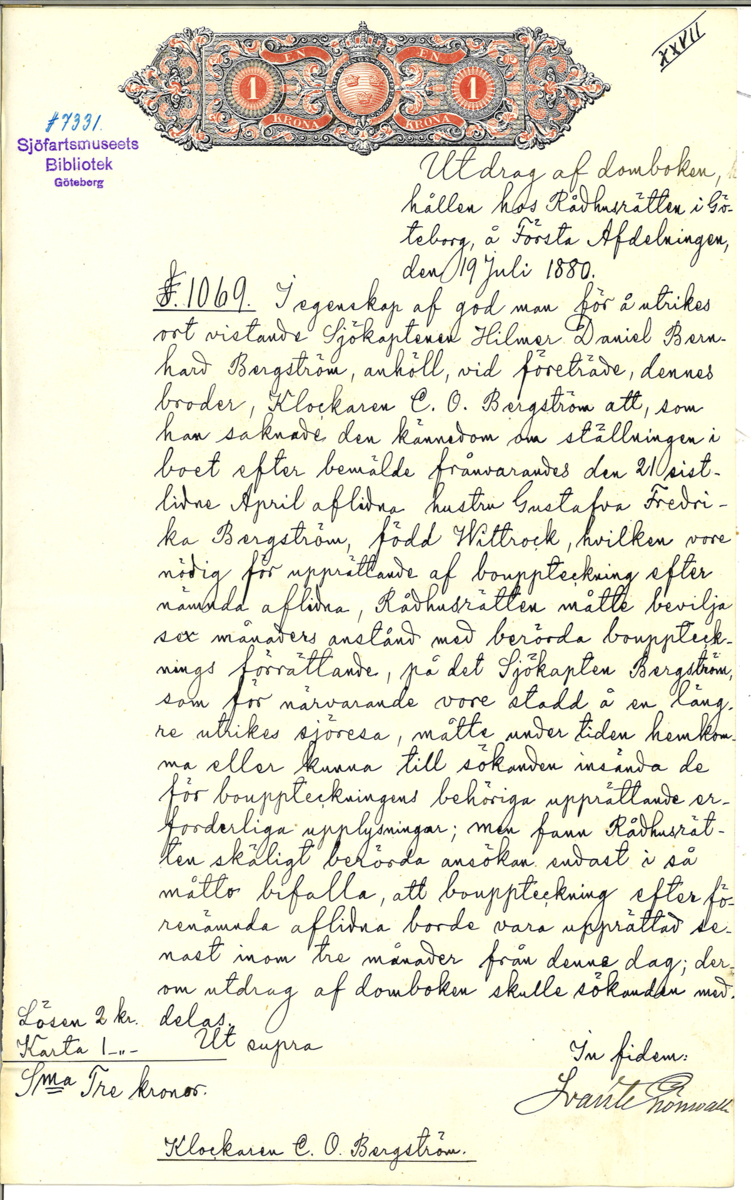 XXVII
EN EN
1 1
KRONA KRONA
#7331.
Sjöfartsmuseets
Bibliotek
Göteborg
Utdrag af domboken,
hållen hos Rådhusrätten i Gö-
teborg, å Första Afdelningen,
den 19 Juli 1880.
§. 1069. I egenskap af god man för å utrikes
ort vistande Sjökaptenen Hilmer Daniel Bern-
hard Bergström, anhöll, vid företräde, dennes
broder, Klockaren C. O. Bergström att, som
han saknade den kännedom om ställningen i
boet efter bemälde frånvarandes den 21 sist-
lidne April aflidna hustru Gustafva Fredri-
ka Bergström, född Wittrock, hvilken vore
nödig för upprättande af bouppteckning efter
nämnda aflidna, Rådhusrätten måtte bevilja
sex månaders anstånd med berörda bouppteck-
nings förrättande, på det Sjökapten Bergström,
som för närvarande vore stadd å en läng-
re utrikes sjöresa, måtte under tiden hemkom-
ma eller kunna till sökanden insända de
för bouppteckningens behöriga upprättande er-
forderliga upplysningar; men fann Rådhusrät-
ten skäligt berörda ansökan endast i så
måtto bifalla, att bouppteckning efter fö-
renämnda aflidna borde vara upprättad se-
nast inom tre månader från denne dag; der-
om utdrag af domboken skulle sökanden med-
delas.
Lösen 2 kr.
Karta 1 -„-
Sma Tre kronor.
Ut supra
In fidem:
Svante Grönwall
Klockaren C. O. Bergström.